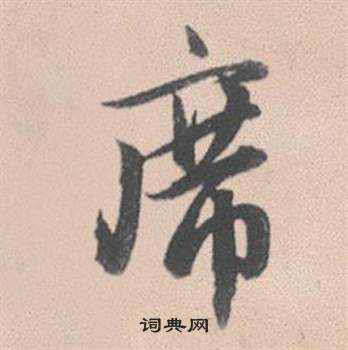 席
词典网